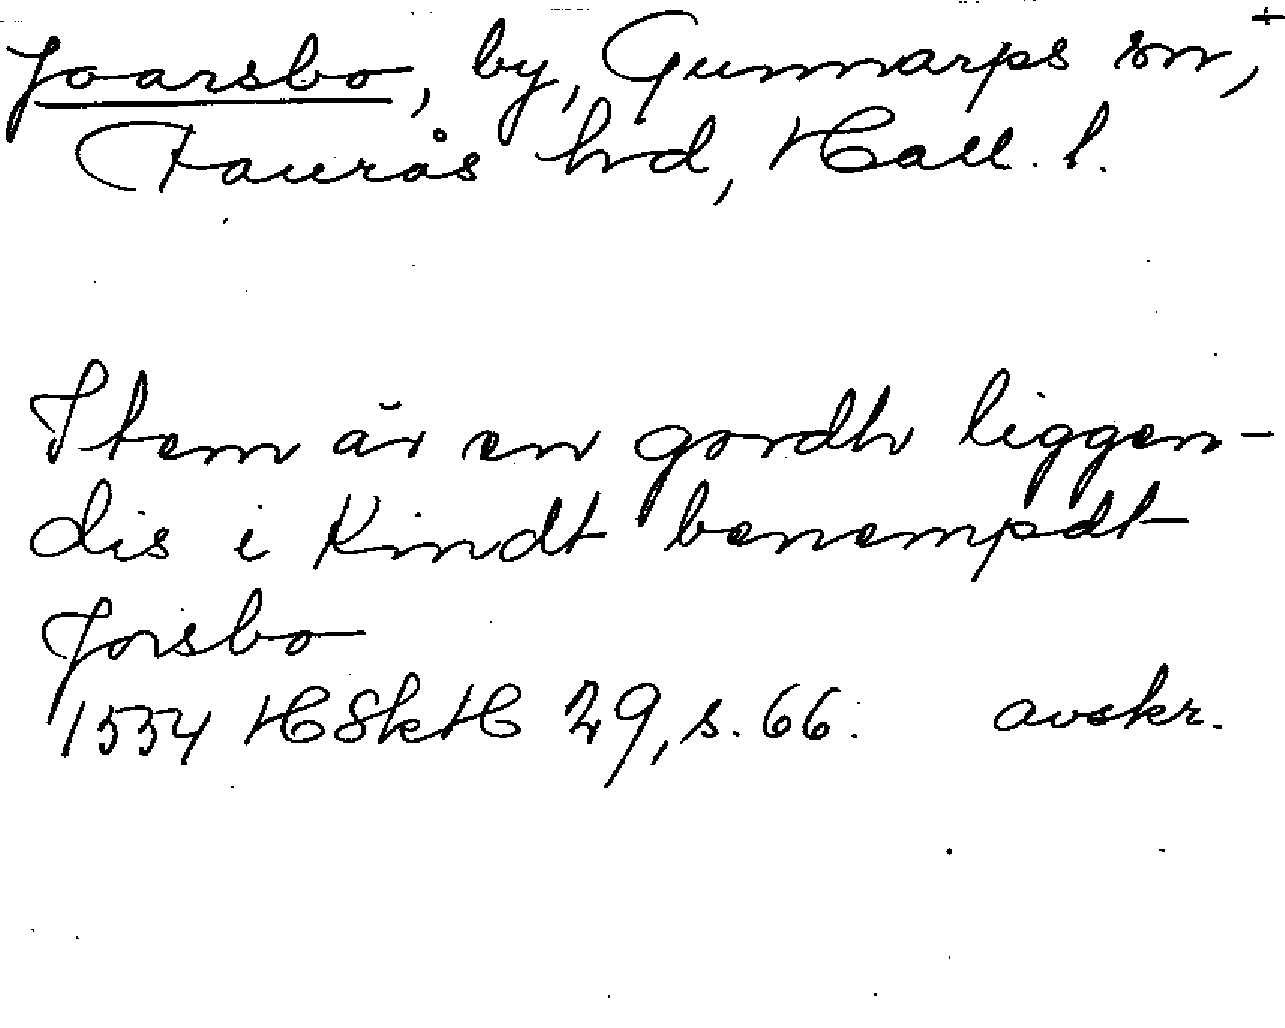 Joarsbo, by, Gunnarps sn, +
Faurås hd, Hall. l.
Item är en gordh liggen-
dis i Kindt benempdt
Jorsbo
1534 HSkH 29, s. 66. avskr.